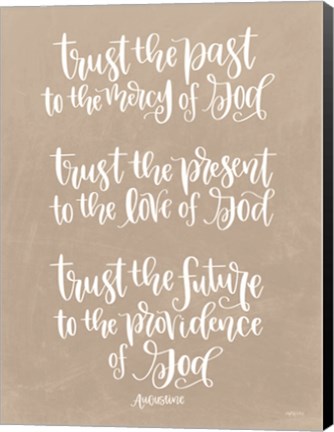 trust the past
to the mercy of God
trust the present
to the love of God
trust the future
to the providence
of God
Augustine